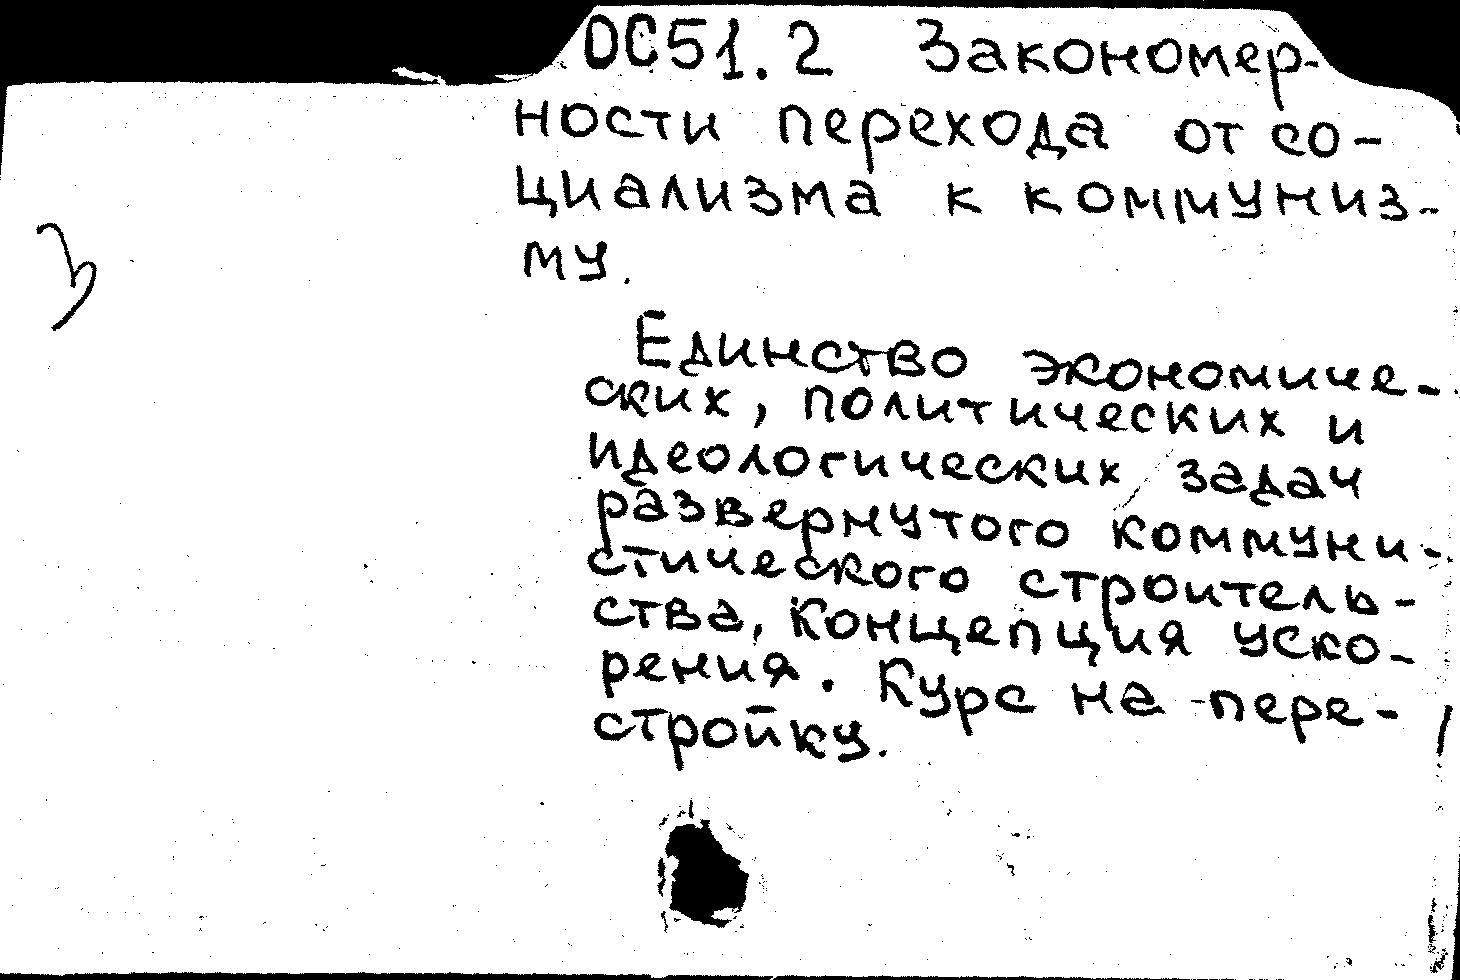 ОС51.2 Закономер-
ности перехода от со-
циализма к коммуниз-
му.
Единство экономиче-
ских, политических и
идеологических задач
развернутого коммуни-
стического строитель-
ства, концепция уско-
рения. Курс на пере-
стройку.